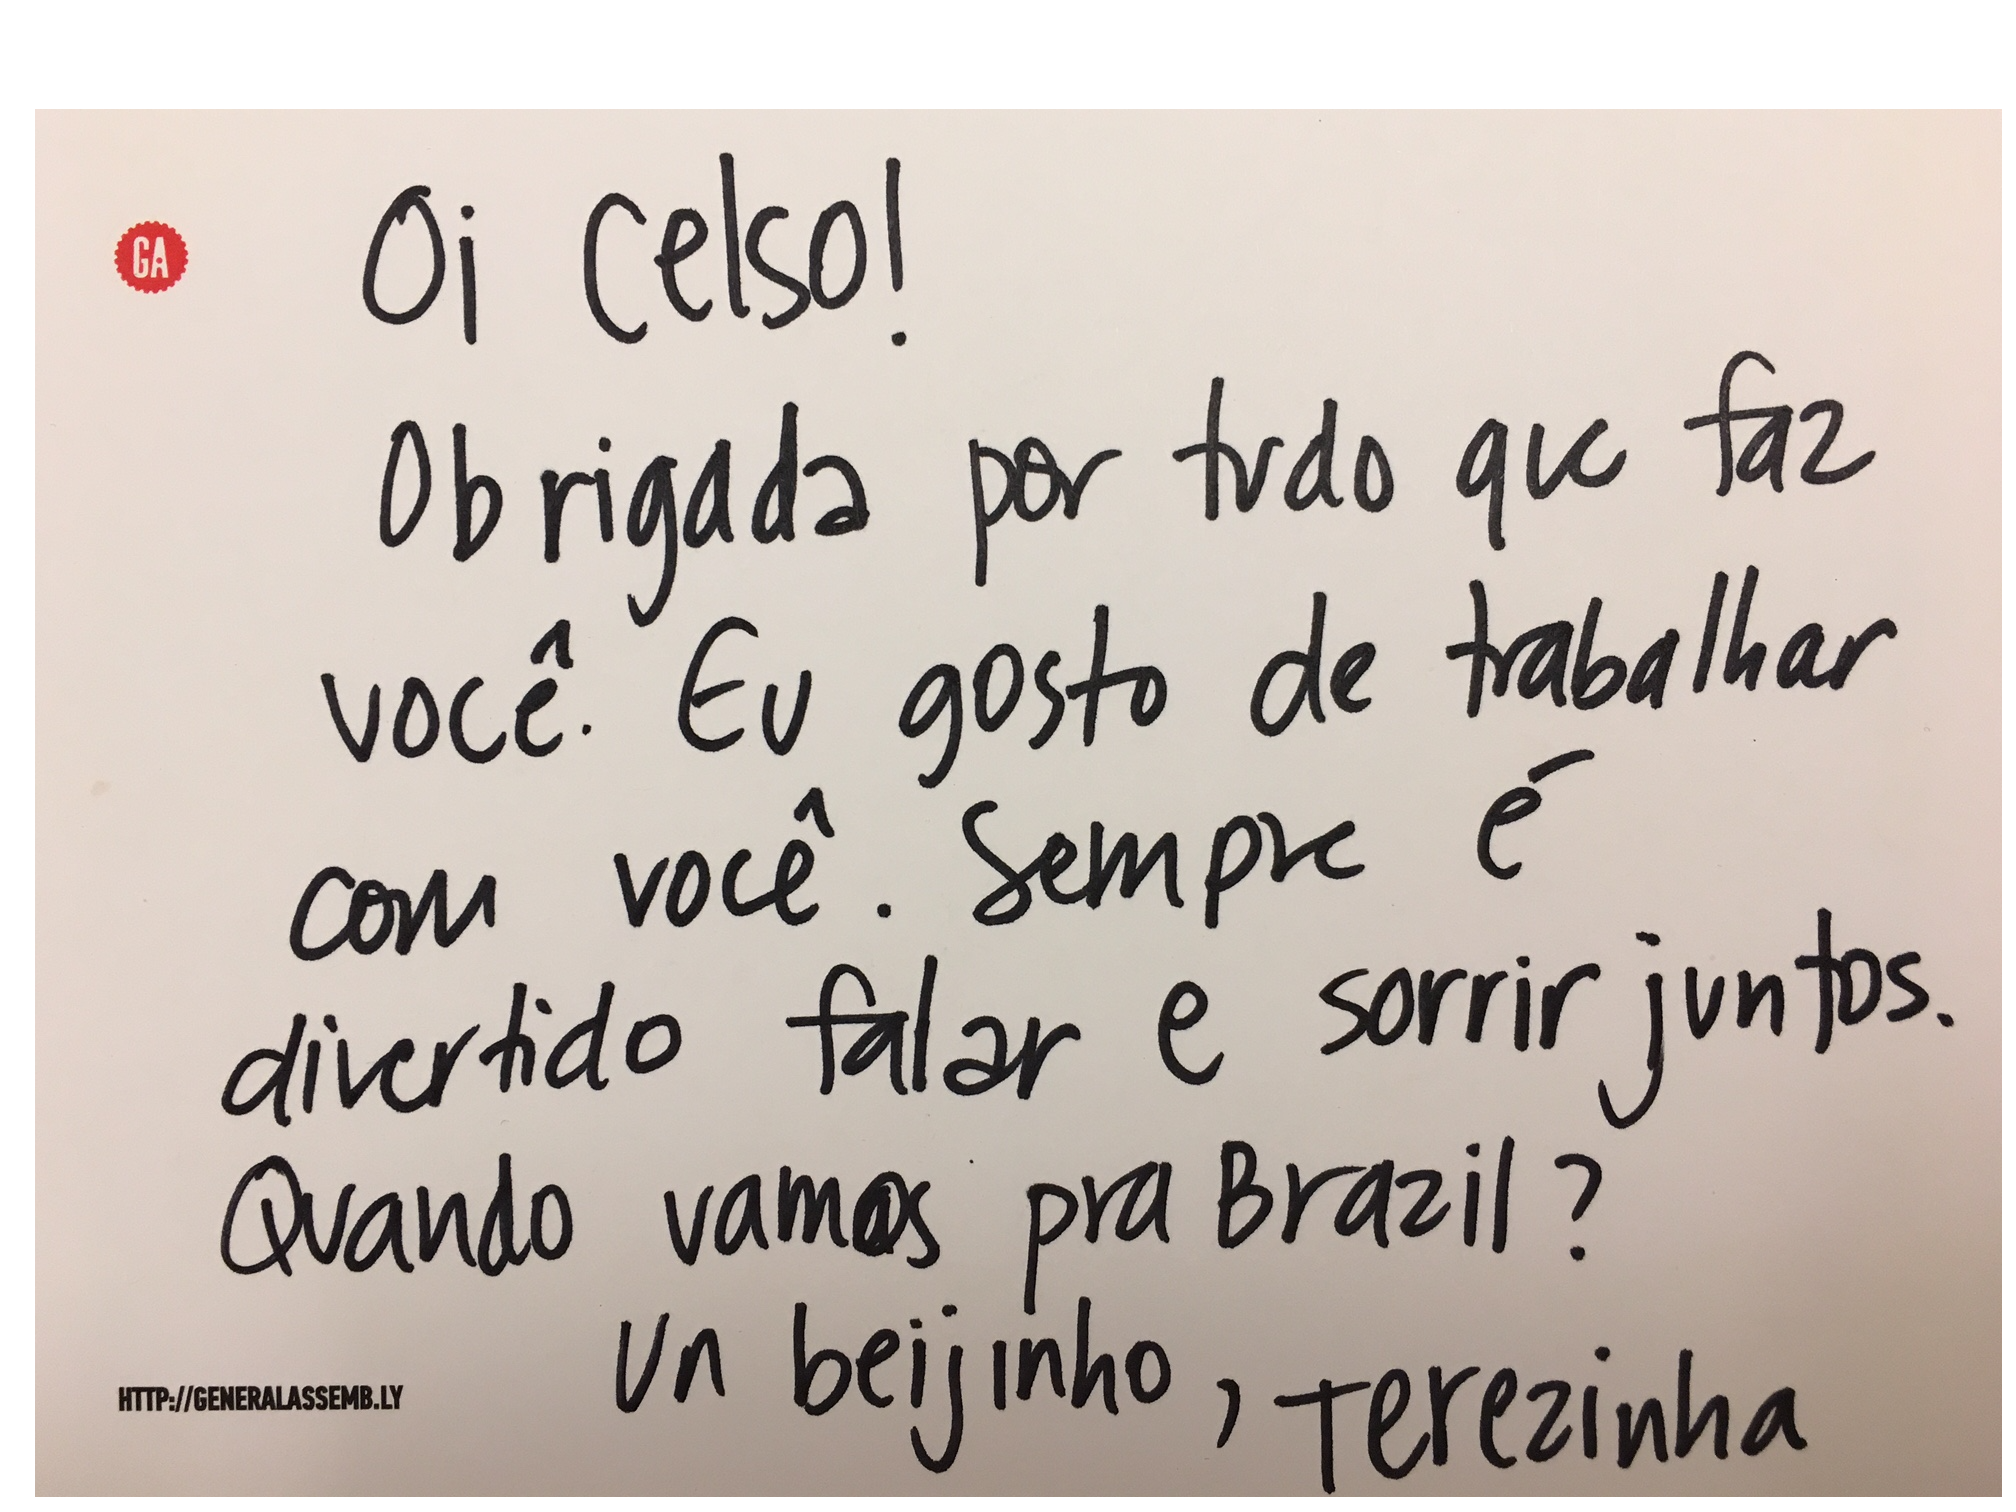 GA
Oi Celso!
Obrigada por tudo que faz
você. Eu gosto de trabalhar
com você. Sempre é
divertido falar e sorrir juntos.
Quando vamos pra Brazil?
Un beijinho, Terezinha
HTTP://GENERALASSEMB.LY